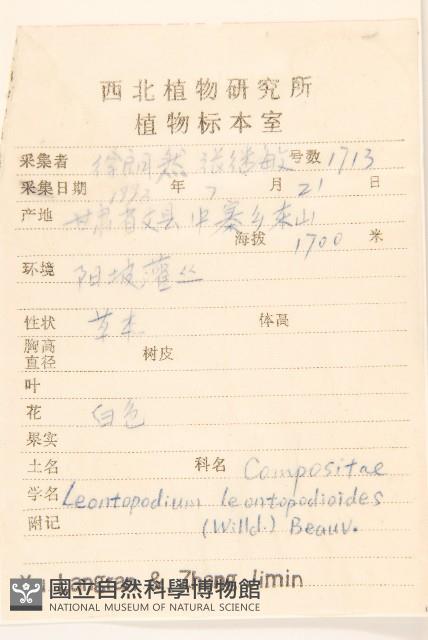 西北植物研究所
植物标本室
采集者 徐朗然 张继敏 号数 1713
采集日期 1992 年 7 月 21 日
产地 甘肃省文县中寨乡东山
海拔 1700 米
环境 阳坡灌丛
性状 草本 体高
胸高直径 树皮
叶
花 白色
果实
土名 科名 Compositae
学名 Leontopodium leontopodioides
附记 (Willd.) Beauv.
Langran & Zhang Jimin
國立自然科學博物館
NATIONAL MUSEUM OF NATURAL SCIENCE